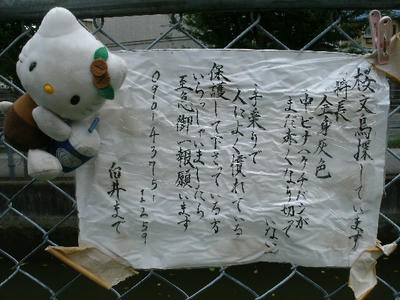 桜文鳥探しています
特長
全身灰色
中ヒナ クチバシが
まだ赤くなり切って
いない
手乗りで
人によく慣れている
保護して下さっている方
いらっしゃいましたら
至急御一報願います
臼井まで